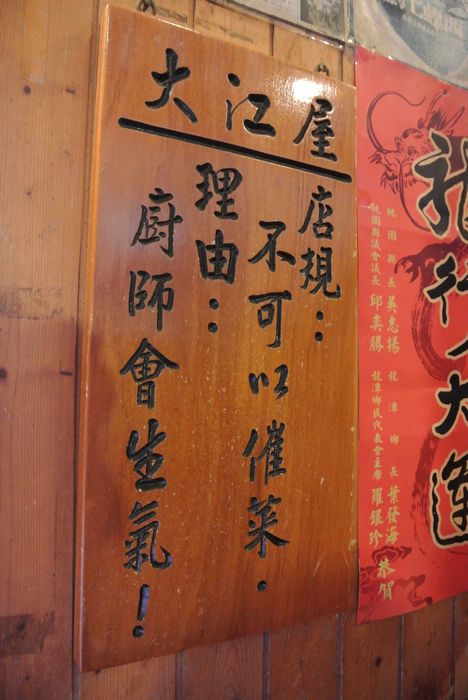 大江屋
店規：
不可以催菜．
理由：
廚師會生氣！
龍行大運
桃園縣長 吳志揚
桃園縣議會議長 邱奕勝
龍潭鄉長 葉發海
龍潭鄉民代表會主席 羅銀珍
恭賀